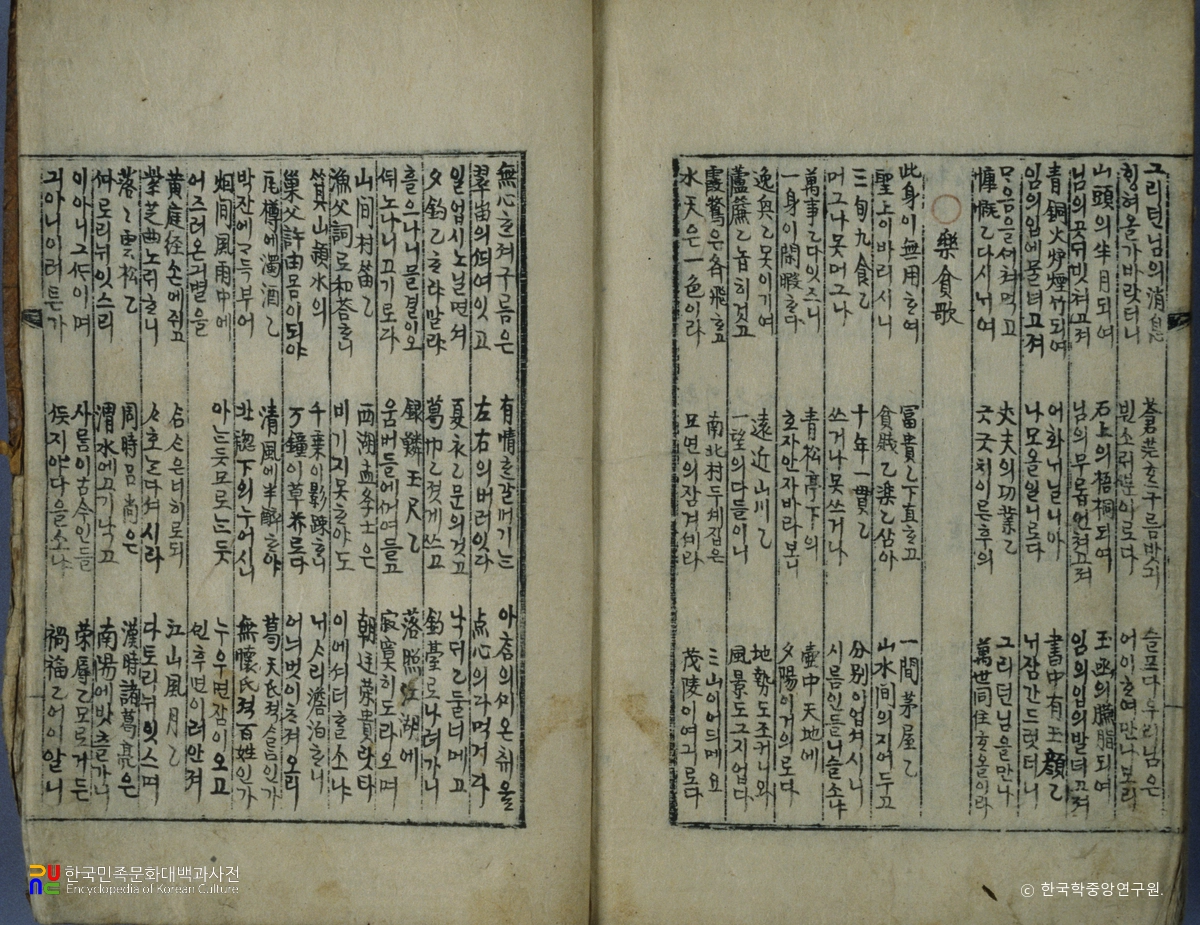 그리던님의消息 蒼茫ᄒᆞᆫ구름밧긔 슬푸다우리님은
힝혀올가바랏터니 빈소ᄅᆡ이로다 어이ᄒᆞ여만나보리
山頭의半月되여 石上의梧桐되여 玉匣의臙脂되여
님의곳듸빗쳐고져 님의무릅언쳐고져 임의입의발녀고져
青銅火炉煙竹되여 어화뉘닐니야 書中有玉顔乙
임의입에물녀고져 나모올일니로다 뉘잠간드럿터니
ᄆᆞ음을셔쳐먹고 丈夫의功業乙 그리던님을만나
慷慨乙다시뉘여 긋긋치이른후의 萬世同住ᄒᆞ올이라
樂貧歌
此身이無用ᄒᆞ여 富貴乙下直ᄒᆞ고 一間茅屋乙
聖上이바리시니 貧賤乙樂乙삼아 山水间의지어두고
三旬九食乙 十年一貫乙 分别이업셔시니
머그나못머그나 쓰거나못쓰거나 시름인들니슬소냐
萬事乙다잇즈니 青松亭下의 壺中天地에
一身이閑暇ᄒᆞ다 호자안자바라보니 夕陽이거의로다
逸興乙못이기여 遠近山川乙 地勢도조커니와
蘆簾乙놉히것고 一望의다들이니 風景도그지업다
霞鶩은各飛ᄒᆞ고 南北村두세집은 三山이어드메요
水天은一色이라 묘연의잠겨셰라 茂陵이여긔로다
無心ᄒᆞᆫ져구름은 有情ᄒᆞᆫ갈며기ᄂᆞᆫ 아츰의ᄉᆡ온취을
翠岫의여잇고 左右의버러잇다 点心의다먹거다
일업시노닐면셔 夏衣乙문의것고 낙뎌乙둘너메고
夕釣乙ᄒᆞ랴말랴 葛巾乙졋게쓰고 釣臺로나려가니
흘으나니물결이오 銀鱗玉尺乙 落照江湖에
노나니고기로다 움버들에여들고 寂寞히도라오며
山间村笛乙 西湖孟學士은 朝廷榮貴랏타
漁父詞로和荅ᄒᆞ니 비기지못ᄒᆞ야도 이에셔더ᄒᆞᆯ소냐
箕山穎水의 千葉이影踈ᄒᆞ니 뉘사리澹泊ᄒᆞ니
巢父許由몸이되야 万鐘이草芥로다 어늬벗이ᄎᆞ져오리
瓦樽에濁酒乙 清風에半醉ᄒᆞ야 葛天氏젹ᄉᆞᄅᆞᆷ인가
박잔에ᄀᆞ득부어 北窓下의누어시니 無懷氏젹百姓인가
烟间風雨中에 아ᄂᆞᆫ듯모로ᄂᆞᆫ듯 누우면잠이오고
어즈러온긔별을 ᄭᆡᆫ후면이려안져
黄庭经손에쥐고 江山風月乙
紫芝曲노ᄅᆡᄒᆞ니 다토리뉘잇스며
落乙雲松乙 周時吕尚은 漢時諸葛亮은
로리뉘잇스리 渭水에고기낙고 南陽에밧츨가니
이아니그며 사ᄅᆞᆷ이古今인들 榮辱乙모로거든
긔아니이러튼가 ᄯᅳᆺ지야다을소냐 禍福乙어이알니
한국민족문화대백과사전
Encyclopedia of Korean Culture
ⓒ 한국학중앙연구원.